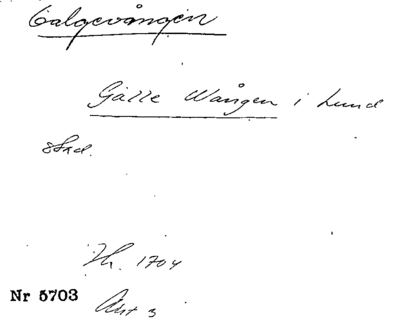 Galgevången
Gälle Wången i Lund
Skd.
Hr. 1704
Nr 5703
Akt 3